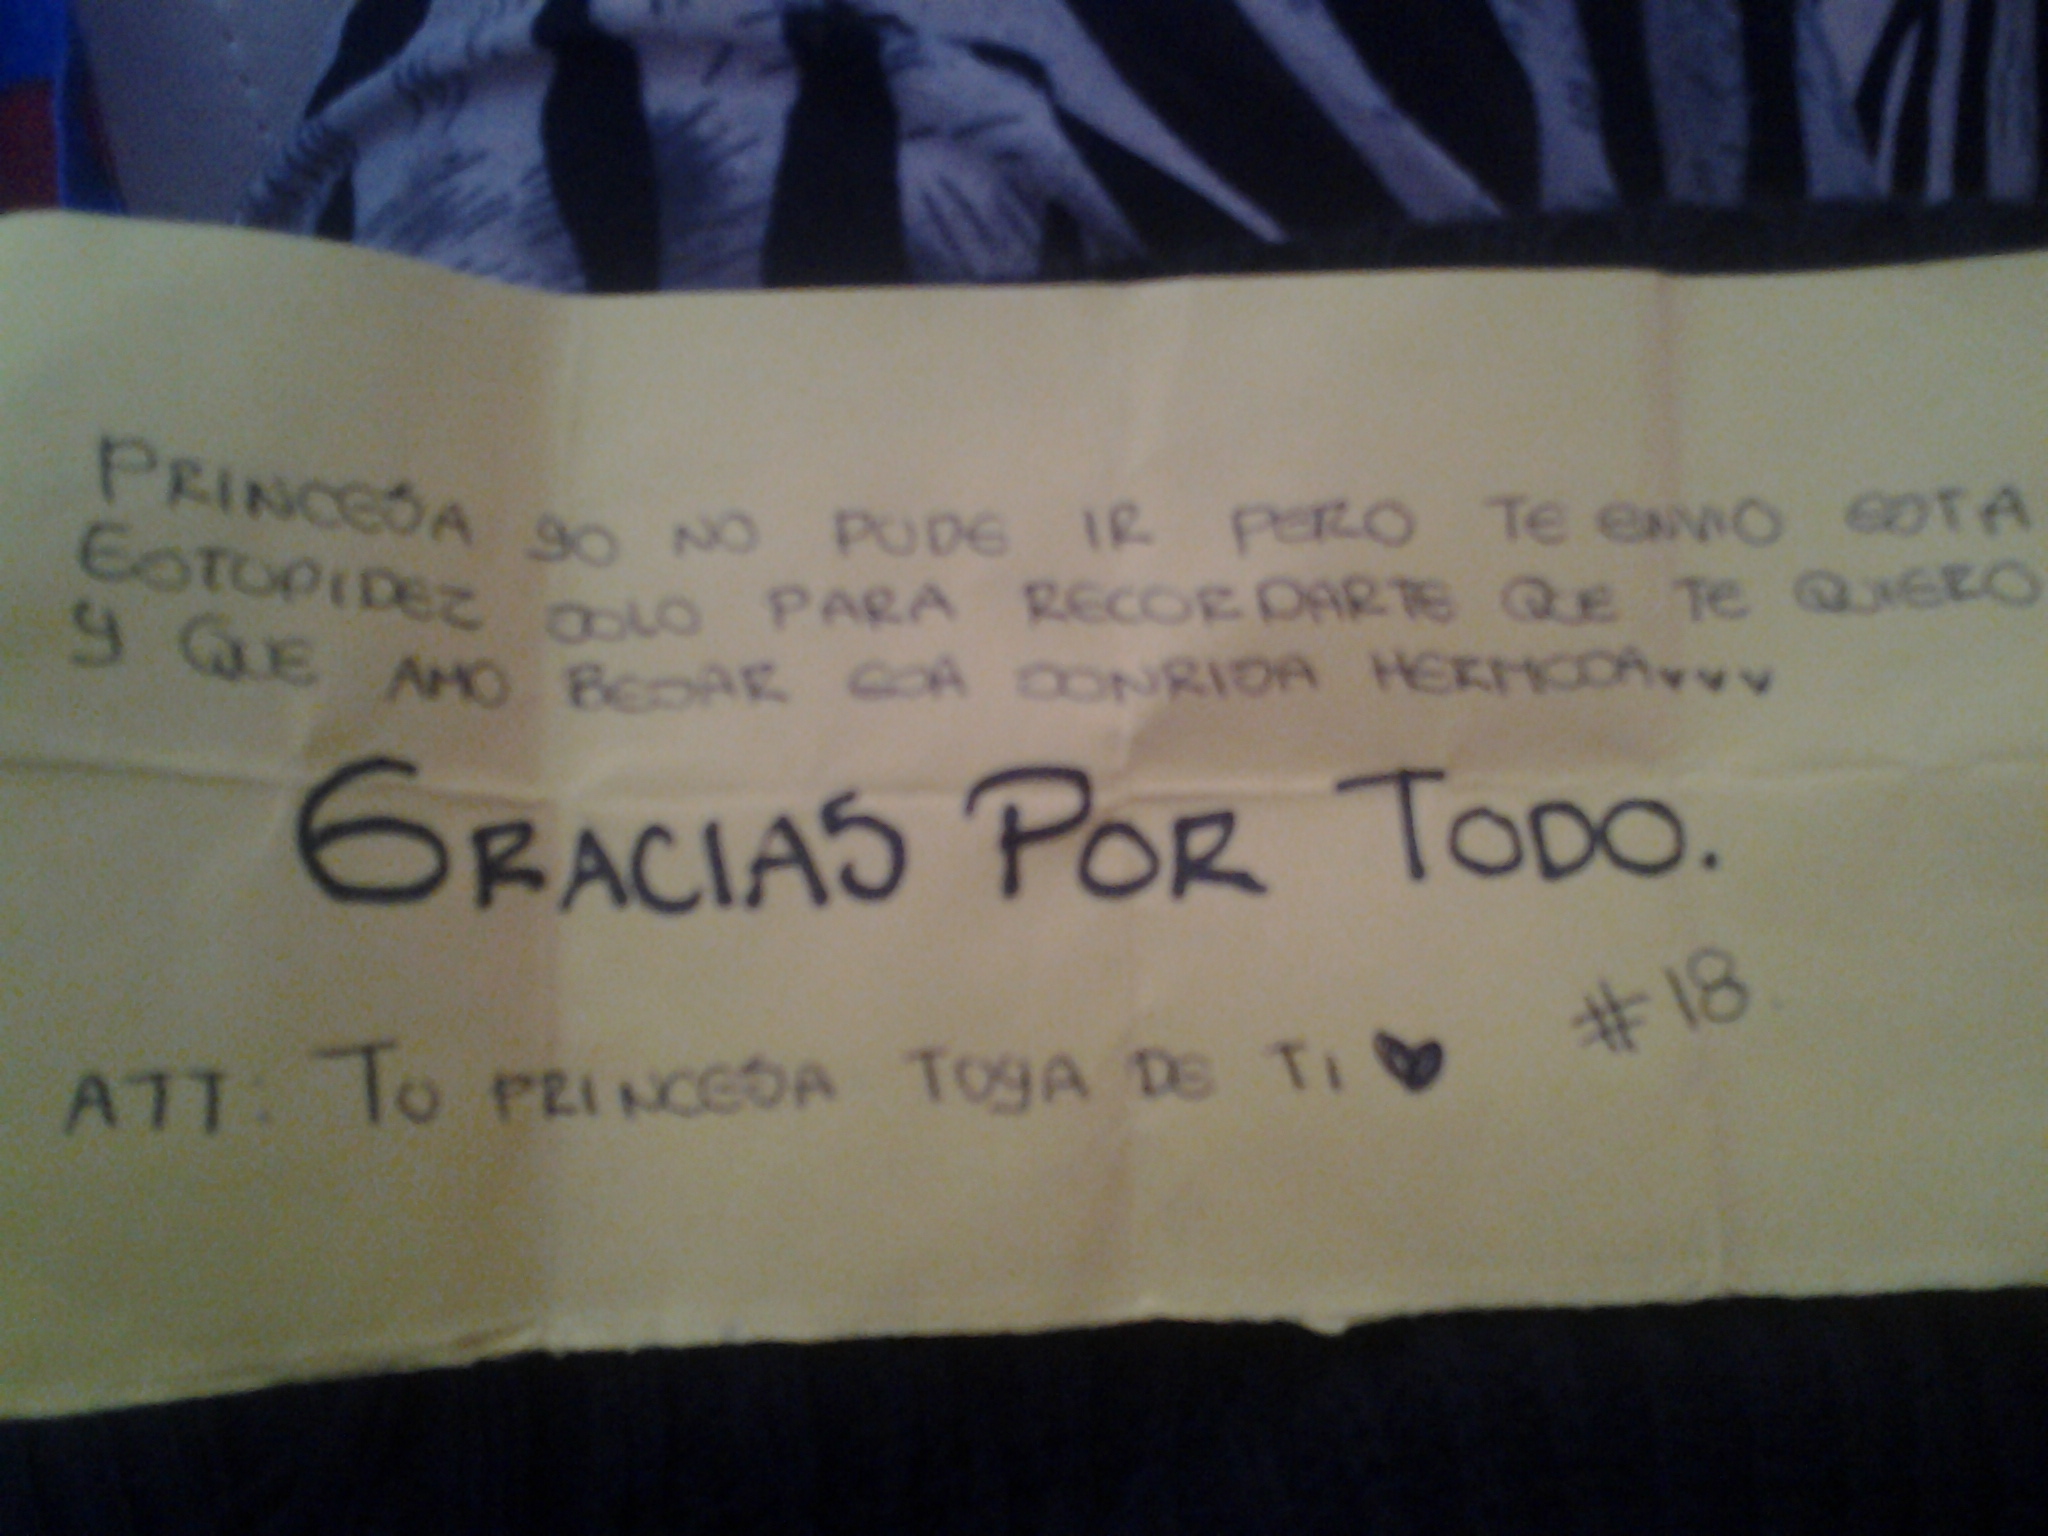 PRINCESA YO NO PUDE IR PERO TE ENVIO ESTA
ESTUPIDEZ SOLO PARA RECORDARTE QUE TE QUIERO
Y QUE AMO BESAR ESA SONRISA HERMOSA♥♥♥
GRACIAS POR TODO.
#18
ATT: TU PRINCESA TOYA DE TI ♥